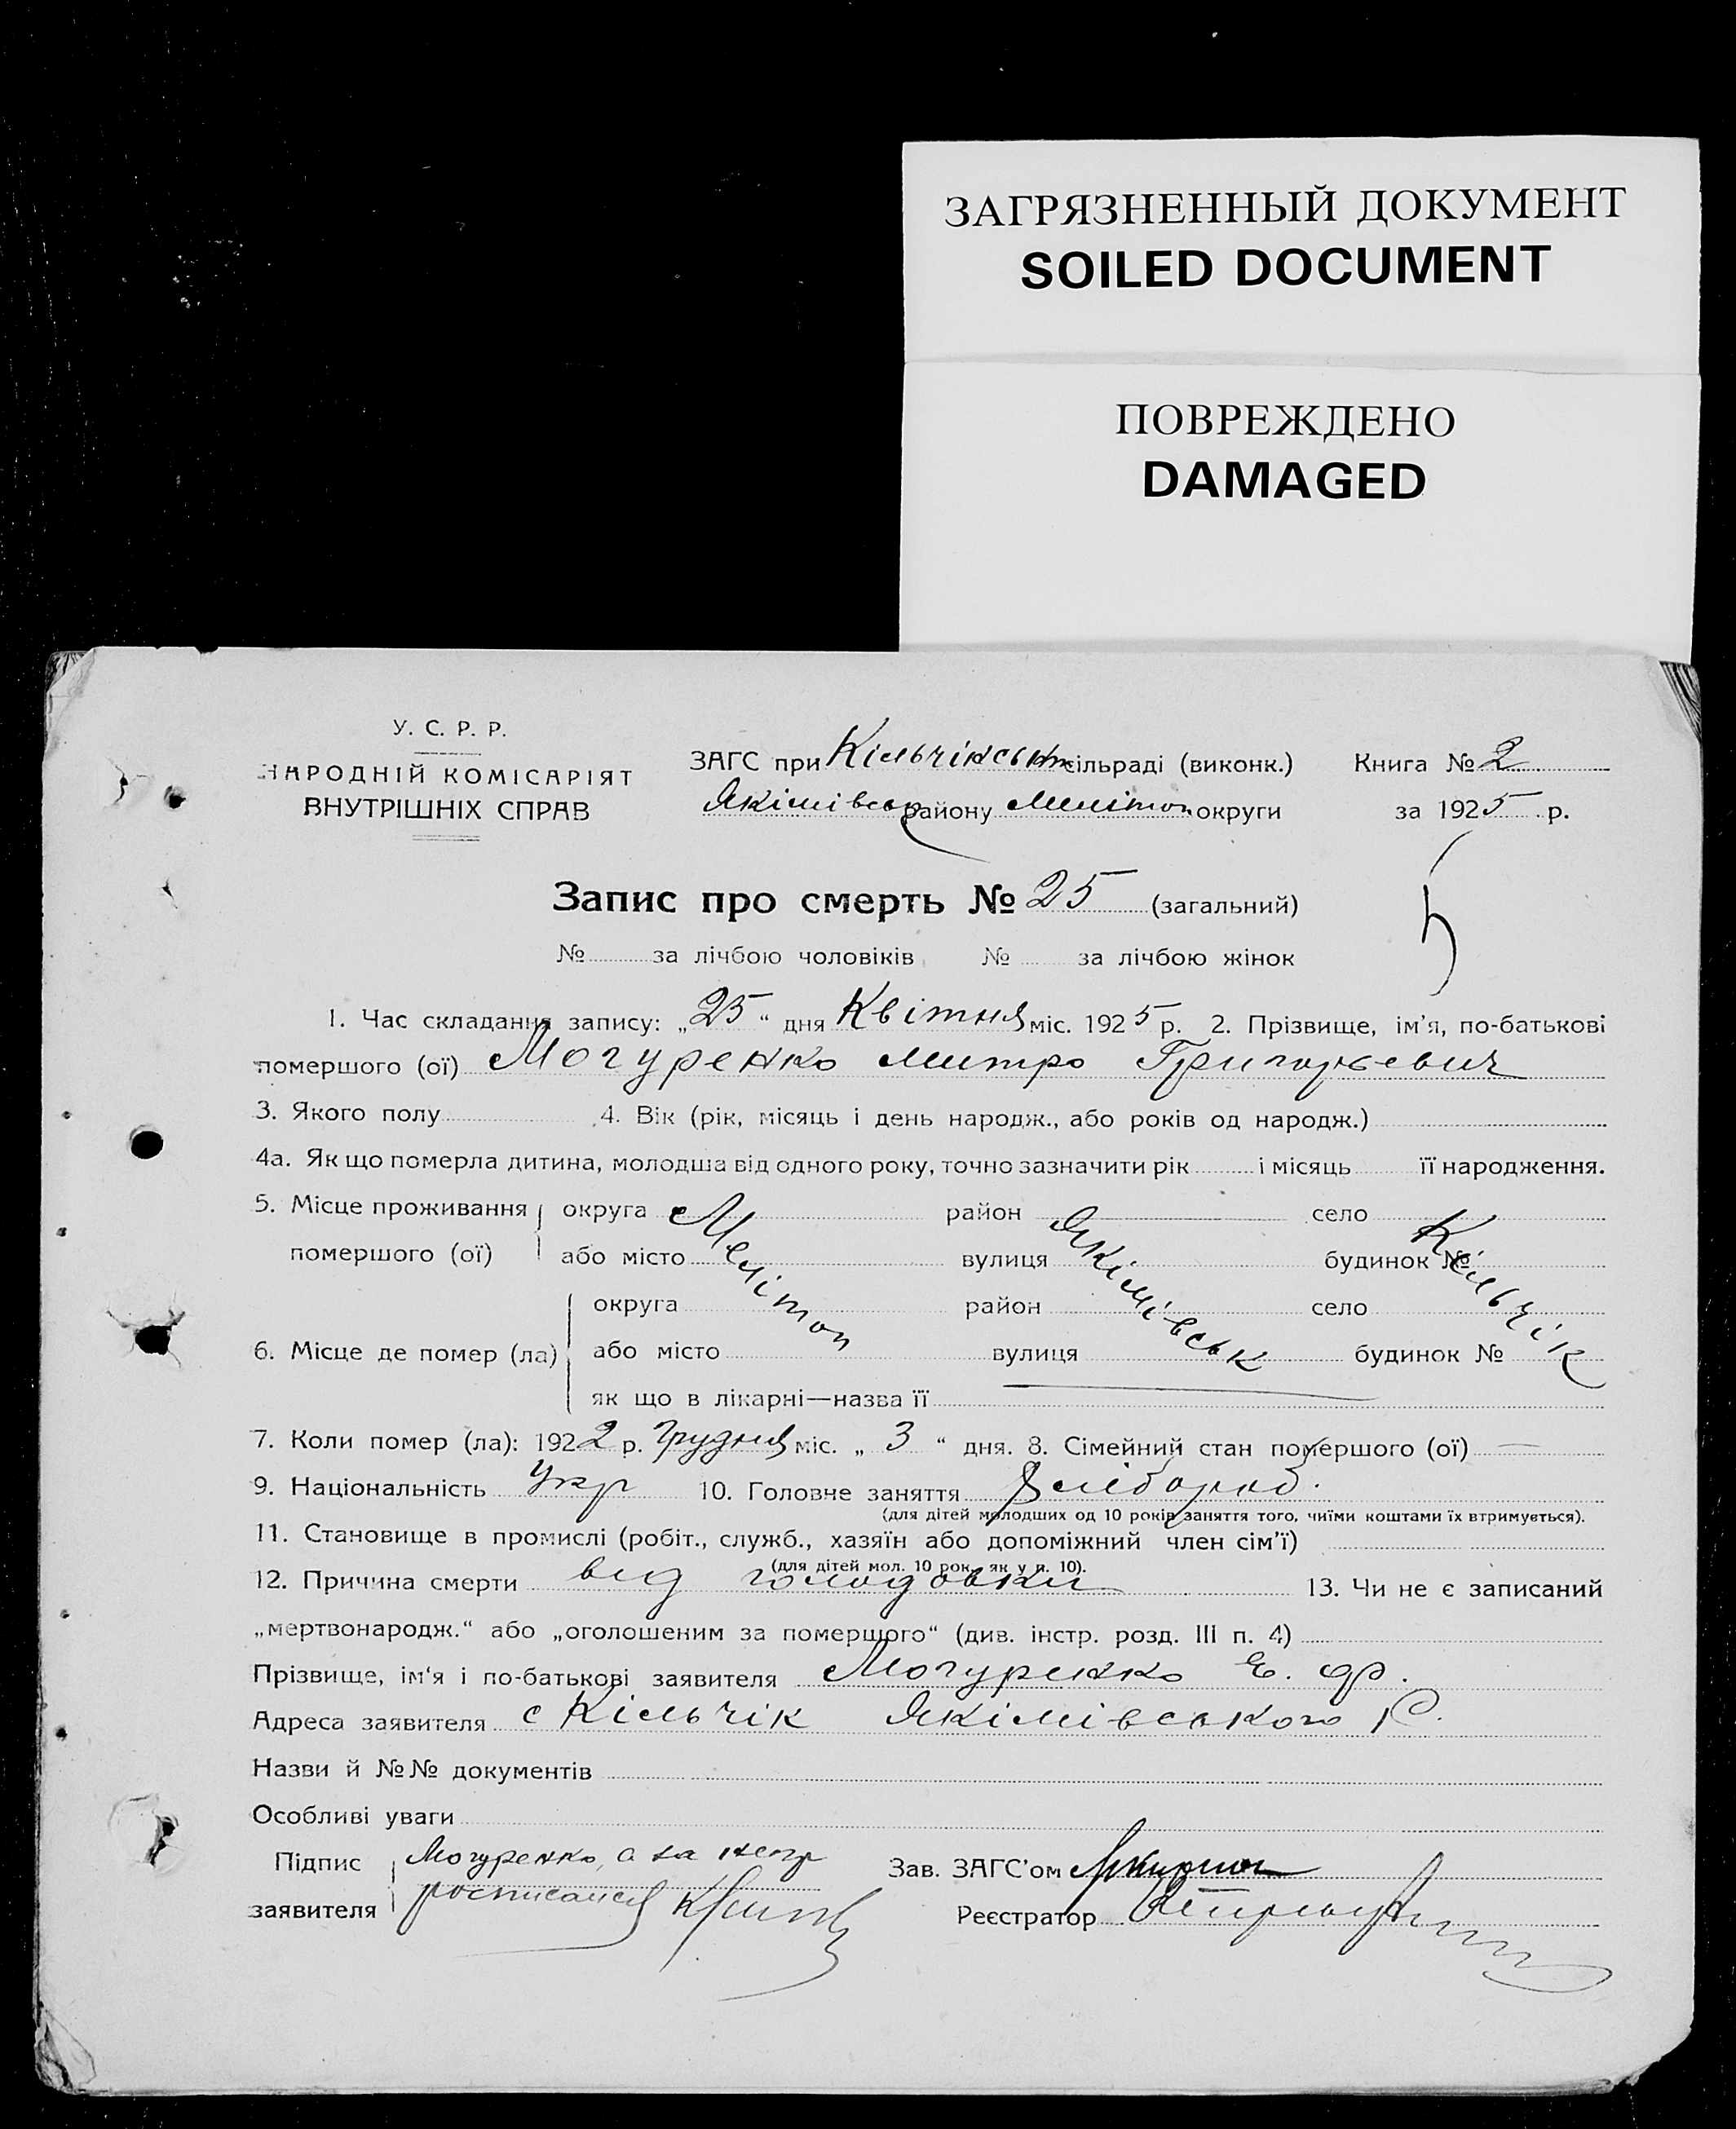 ЗАГРЯЗНЕННЫЙ ДОКУМЕНТ
SOILED DOCUMENT
ПОВРЕЖДЕНО
DAMAGED
У. С. Р. Р.
НАРОДНІЙ КОМІСАРІЯТ
ВНУТРІШНІХ СПРАВ
ЗАГС при Кільчікськ сільраді (виконк.) Книга № 2
Якімівськ району Мелітоп. округи за 1925 р.
Запис про смерть № 25 (загальний)
№ за лічбою чоловіків № за лічбою жінок
1. Час складання запису: „25“ дня Квітня міс. 1925 р. 2. Прізвище, ім'я, по-батькові
помершого (ої) Могуренко Митро Григорьевич
3. Якого полу 4. Вік (рік, місяць і день народж., або років од народж.)
4а. Як що померла дитина, молодша від одного року, точно зазначити рік і місяць її народження.
5. Місце проживання округа Мелітоп район Якімівськ село Кільчік
помершого (ої) або місто вулиця будинок №
округа район село
6. Місце де помер (ла) або місто вулиця будинок №
як що в лікарні—назва її
7. Коли помер (ла): 1922 р. Грудня міс. „3“ дня. 8. Сімейний стан помершого (ої) —
9. Національність Укр 10. Головне заняття
(для дітей молодших од 10 років заняття того, чиїми коштами їх втримується).
11. Становище в промислі (робіт., служб., хазяїн або допоміжний член сім'ї)
(для дітей мол. 10 рок. як у п. 10).
12. Причина смерти від голодовки 13. Чи не є записаний
„мертвонародж.“ або „оголошеним за померщого“ (див. інстр. розд. III п. 4)
Прізвище, ім'я і по-батькові заявителя Могуренко Є. Ф.
Адреса заявителя с Кільчік Якімівського Р.
Назви й №№ документів
Особливі уваги
Підпис Могуренко, а за негр Зав. ЗАГС'ом
заявителя росписался Реєстратор